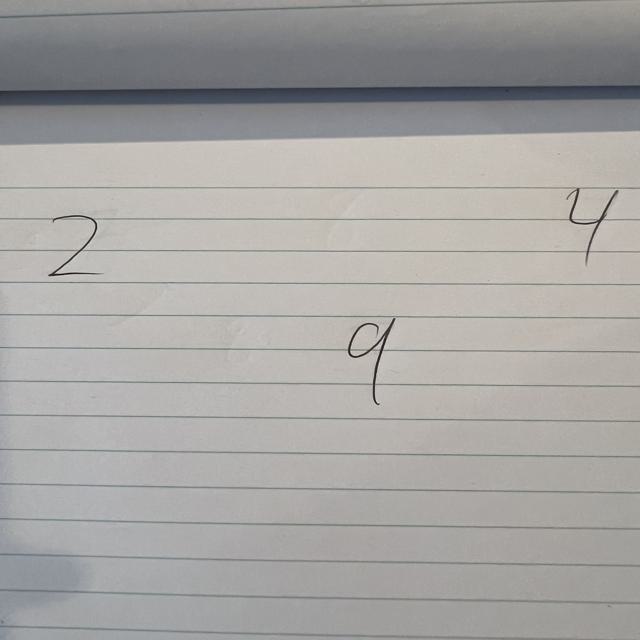 2 4
9